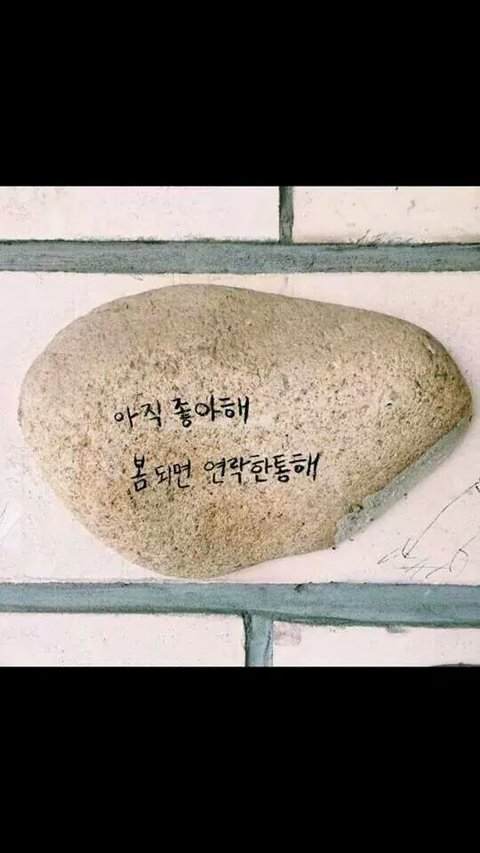 아직 좋아해
봄 되면 연락한통해